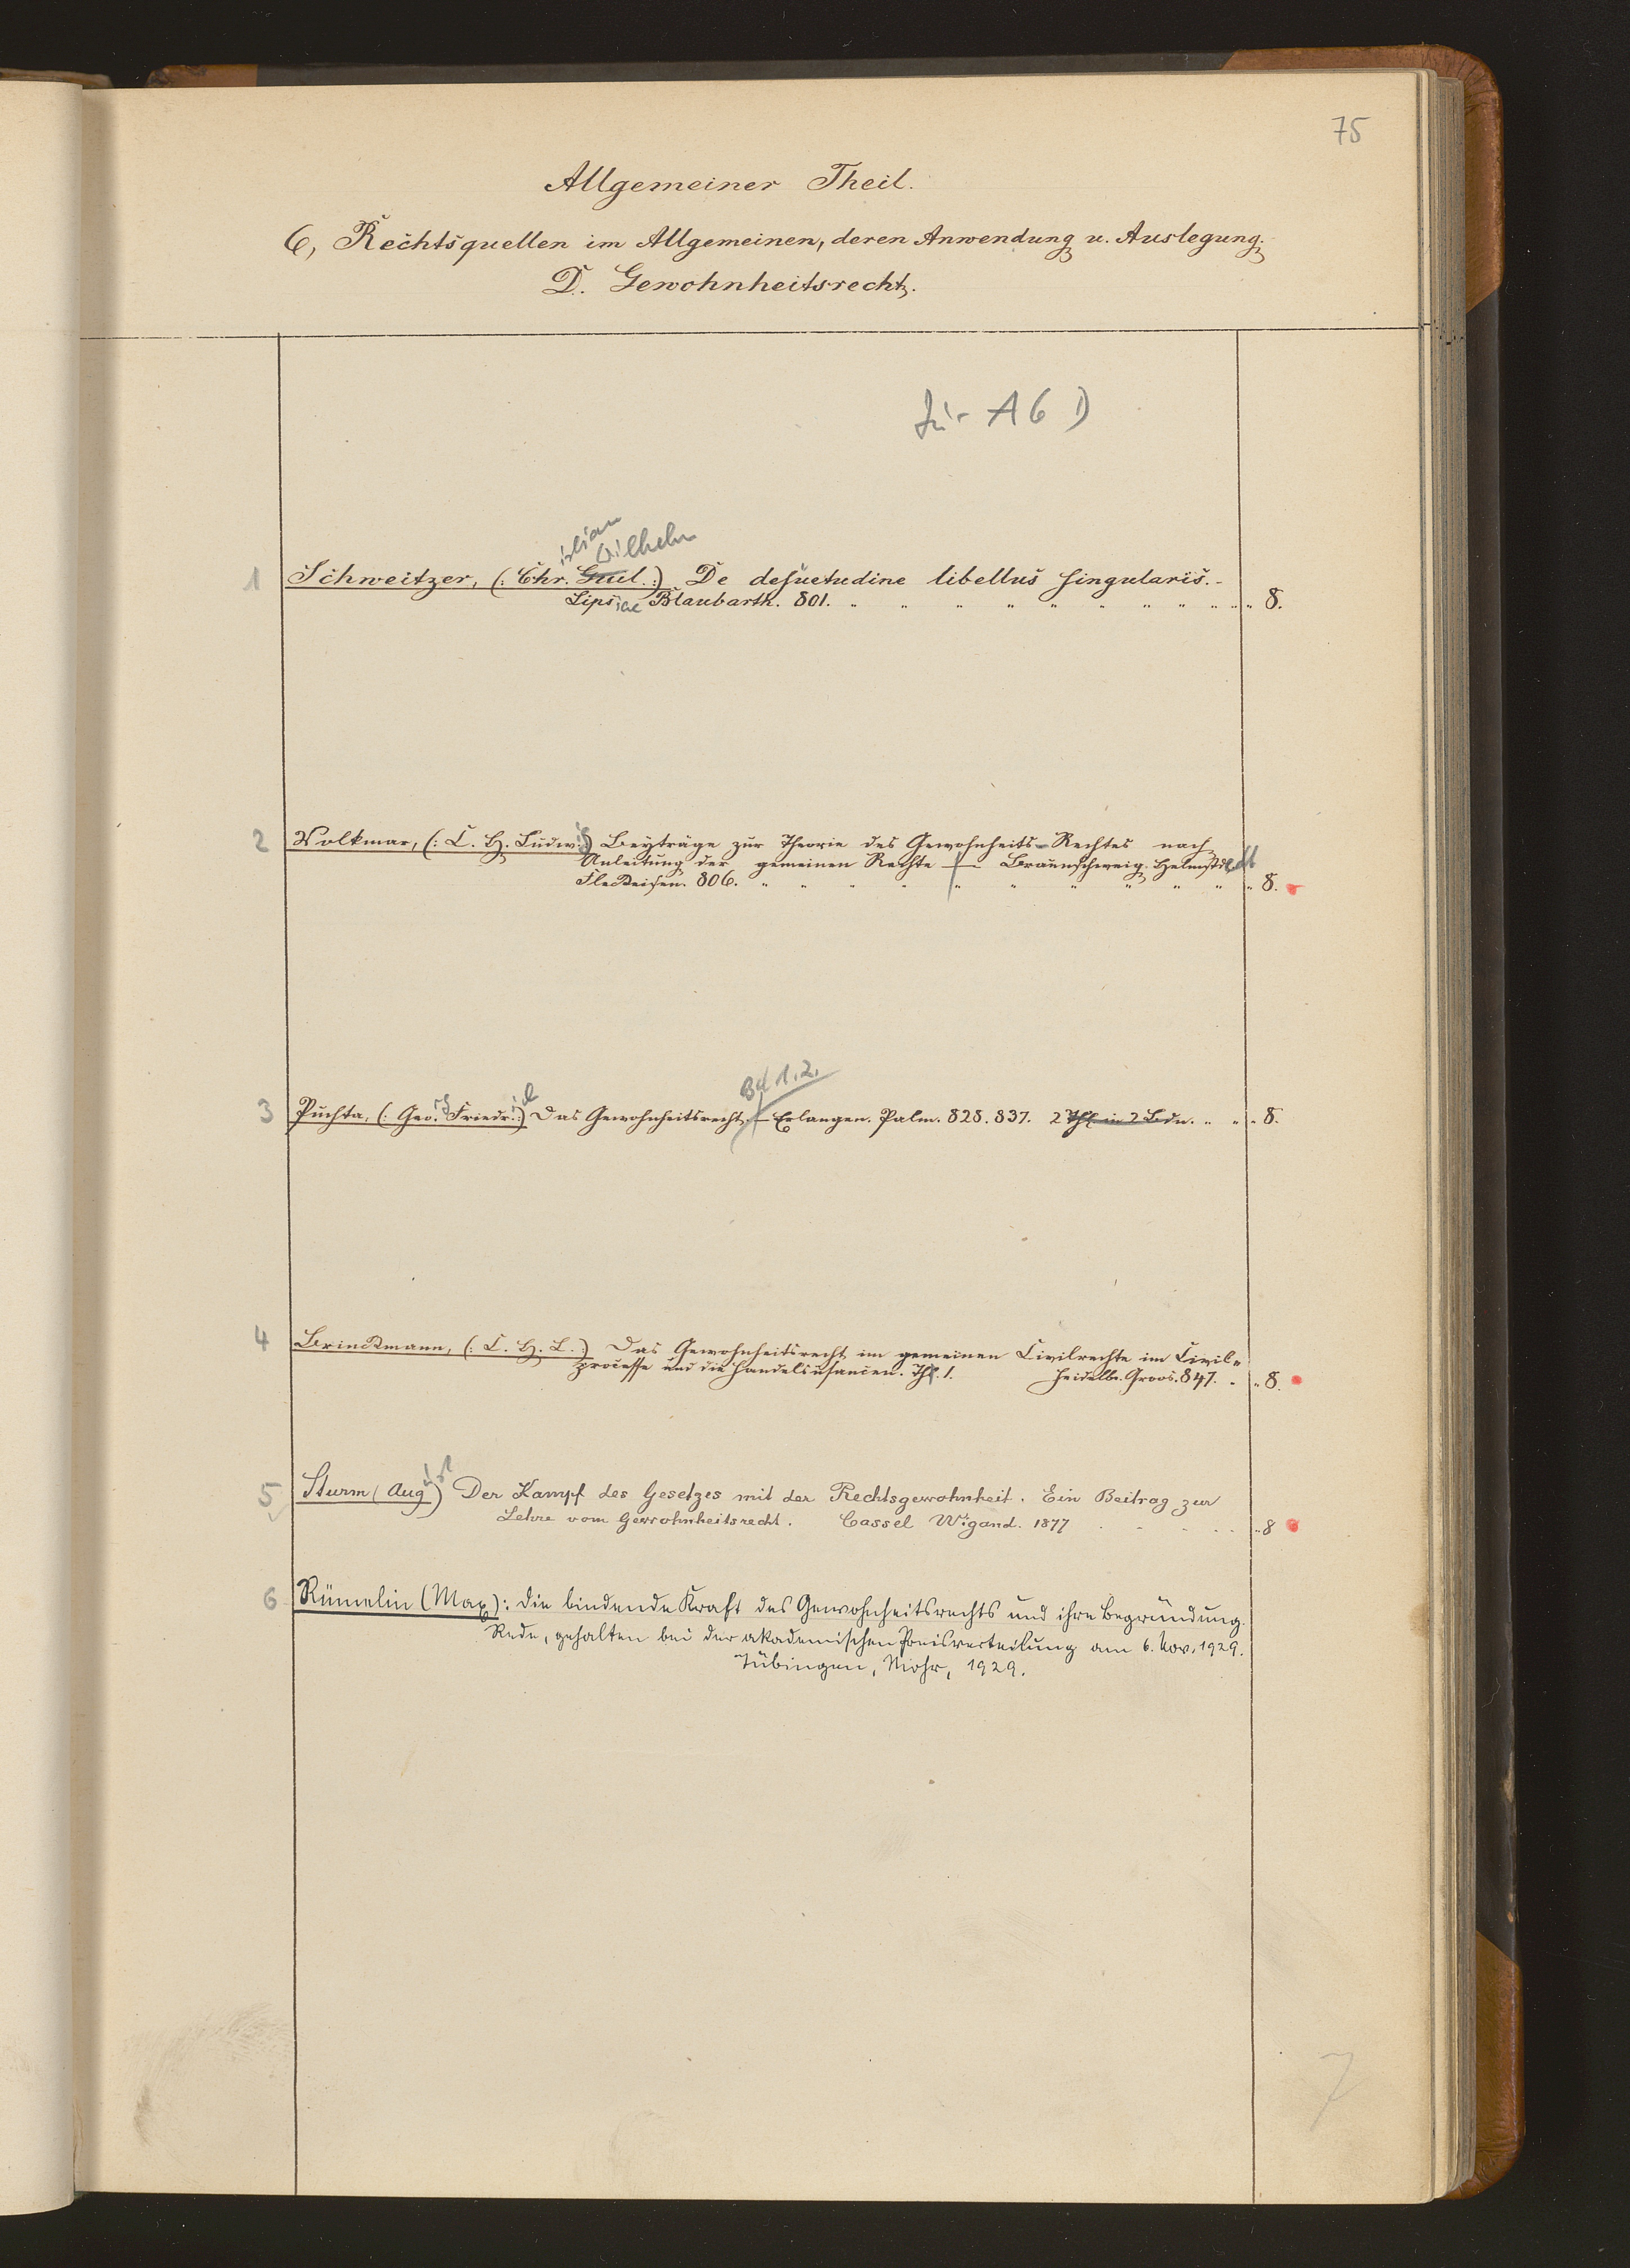 75
Allgemeiner Theil.
6, Rechtsquellen im Allgemeinen, deren Anwendung u. Auslegung.
D. Gewohnheitsrecht.
für A 6 D
istian Wilhelm
1 Schweitzer, (: Chr. Guil. :) De desuetudine libellus singularis. -
Lipsiae Blaubarth. 801. " " " " " " " " " " " 8.
2 Volkmar, (: C. H. Ludwig) Beyträge zur Theorie des Gewohnheits-Rechtes nach
Anleitung der gemeinen Rechte — Braunschweig. Helmstedt
Fleckeisen. 806. " " " " " " " " " " " 8.
Bd 1.2.
3 Puchta, (: Georg Friedrich) Das Gewohnheitsrecht — Erlangen. Palm. 828. 837. 2 Thl in 2 Bdn. " " " 8.
4 Brinckmann, (: C. H. L. :) Das Gewohnheitsrecht im gemeinen Civilrechte im Civil-
processe und die Handelsusancen. Th. 1. Heidelb. Groos. 847. " " 8.
5 Sturm (August) Der Kampf des Gesetzes mit der Rechtsgewohnheit. Ein Beitrag zur
Lehre vom Gewohnheitsrecht. Cassel Wigand. 1877 . . . . . " 8
6 Rümelin (Max): Die bindende Kraft des Gewohnheitsrechts und ihre Begründung.
Rede, gehalten bei der akademischen Preisverteilung am 6. Nov. 1929.
Tübingen, Mohr, 1929.
7